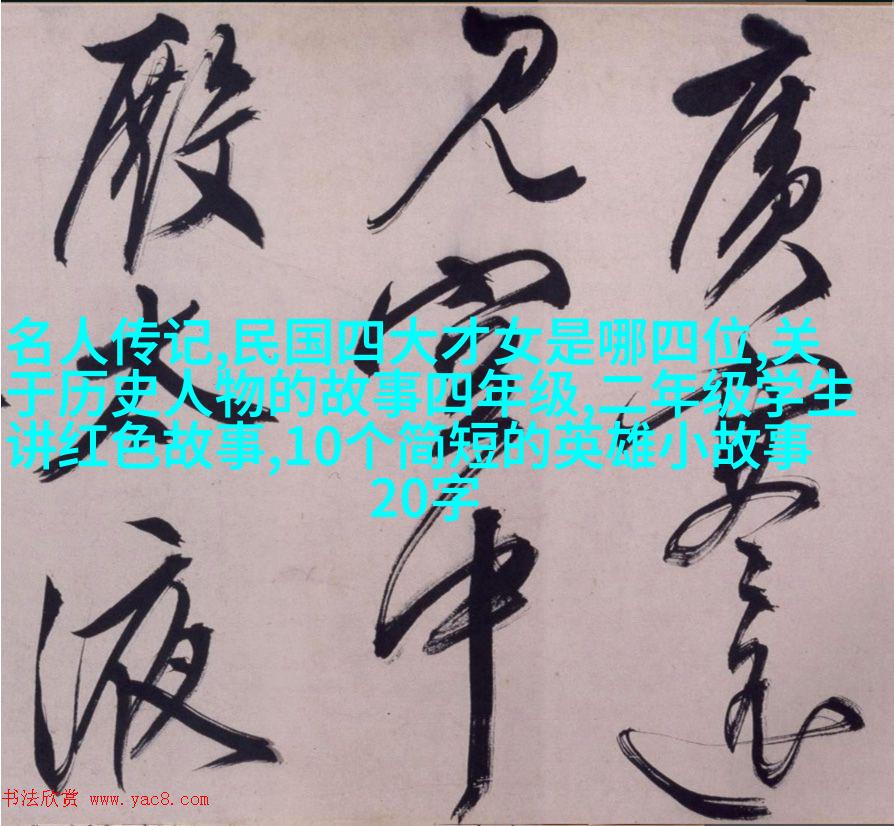 廣寒遥
见空中
殿太液
名人传记,民国四大才女是哪四位,关
于历史人物的故事四年级,二年级学生
讲红色故事,10个简短的英雄小故事
20字
书法欣赏 www.yac8.com